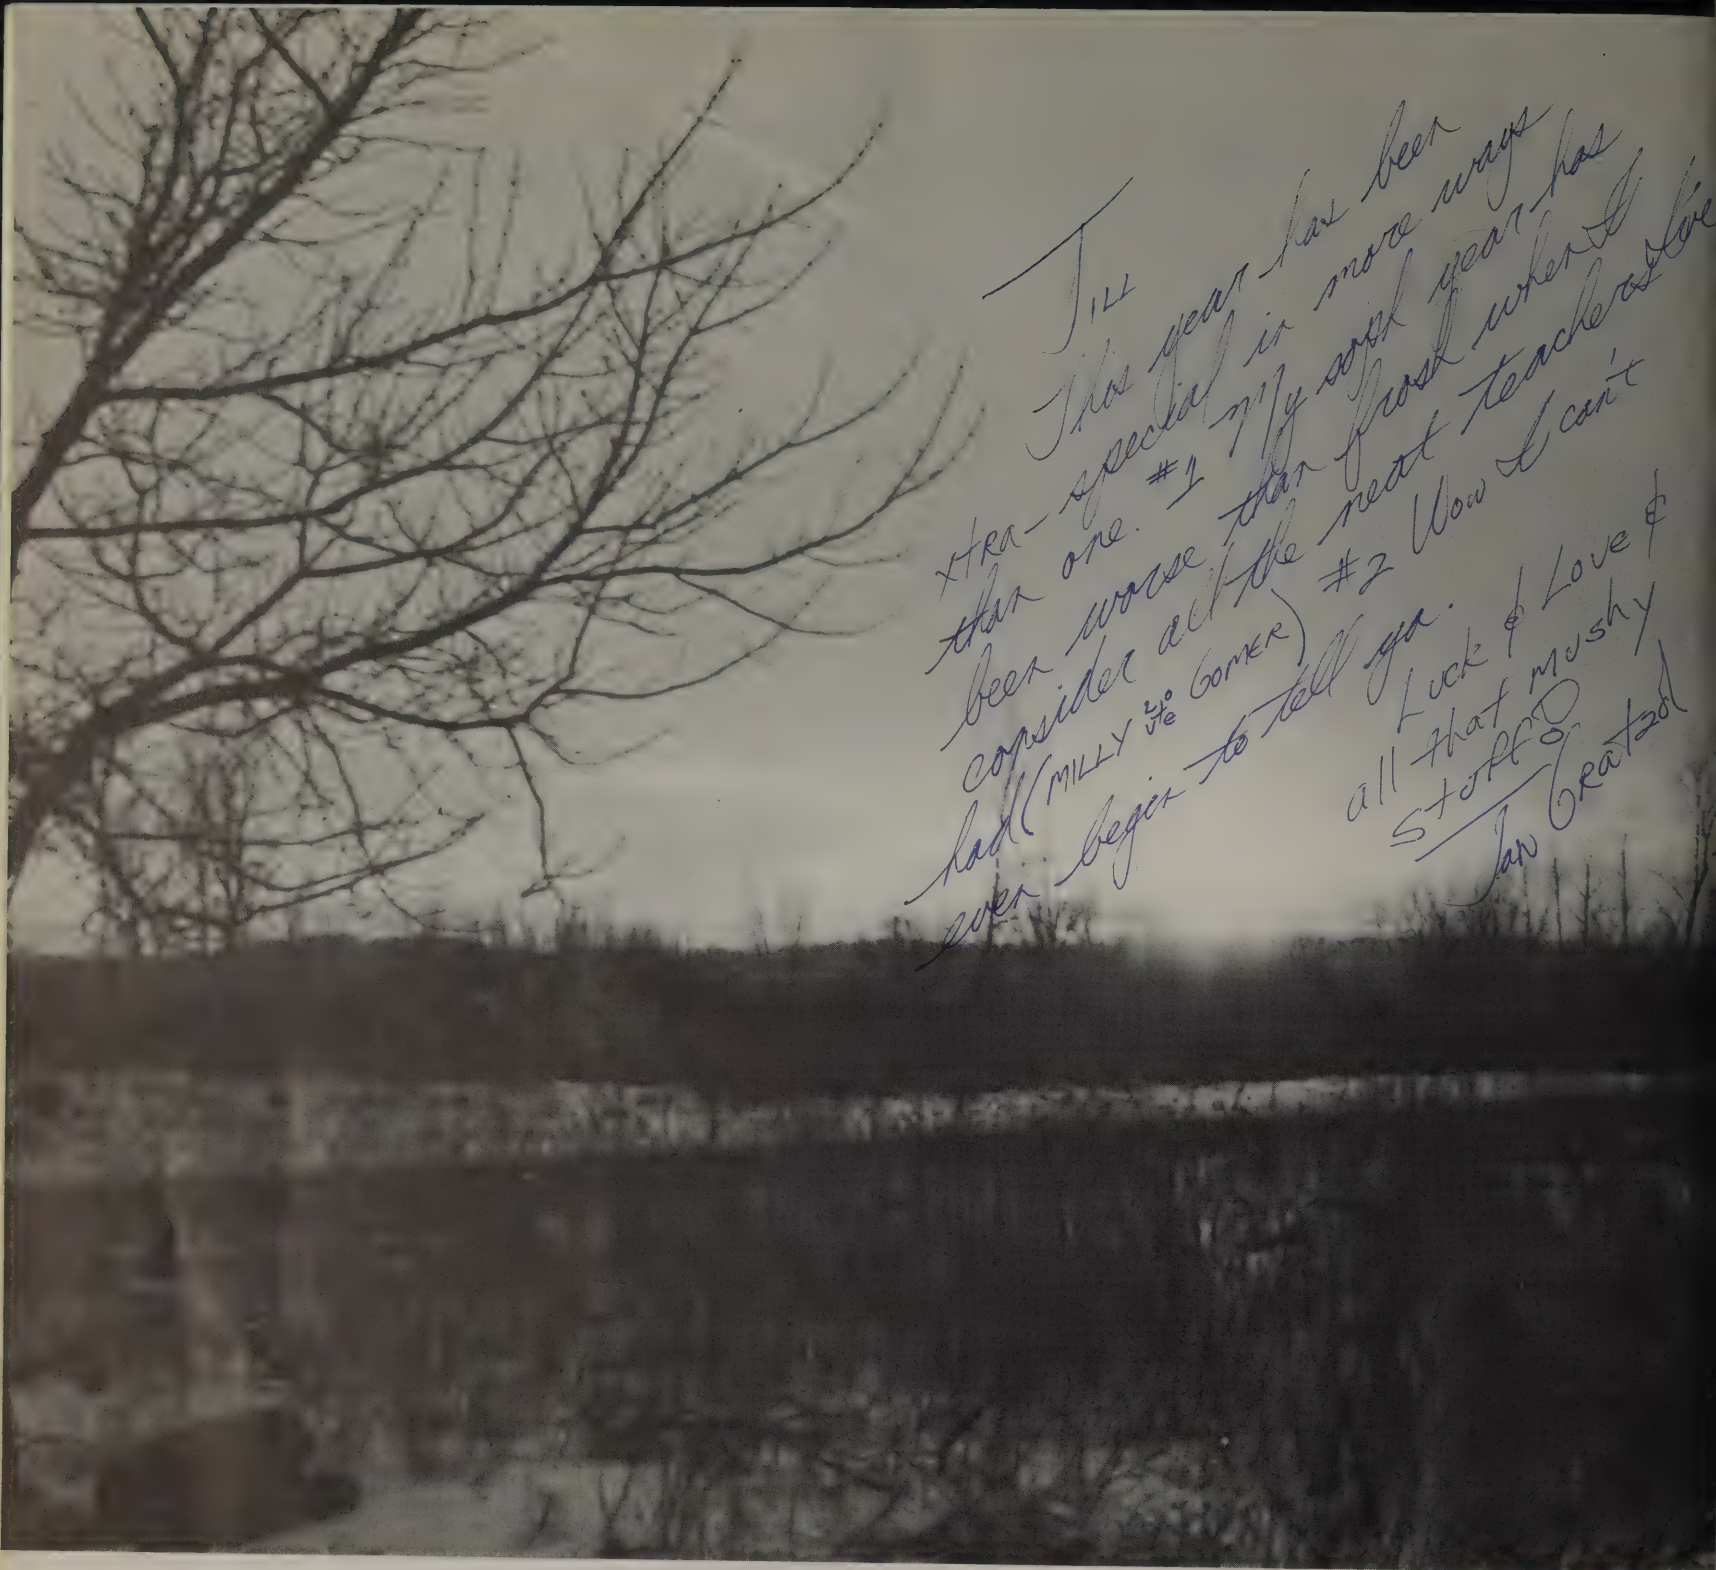 Jill
This year has been
xtra-special in more ways
than one. #1 My soph year has
been worse than frosh when I
consider all the neat teachers I've
had (MILLY GOMER) #2 Wow I can't
even begin to tell ya.
Luck & Love &
all that mushy
stuff
Jan Gratzol